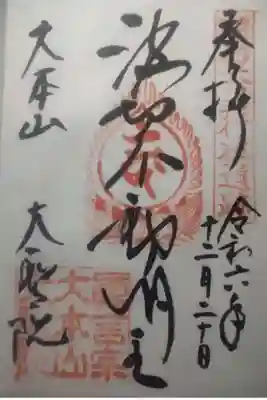 奉拝
令和六年
十二月二十日
波切不動明王
大本山
大聖院
大本山